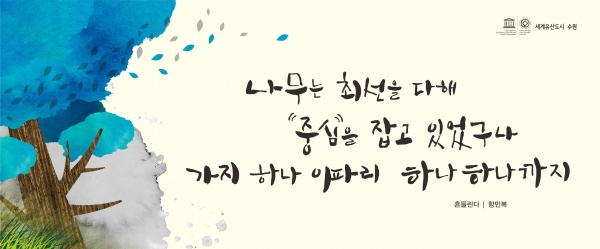 세계유산도시 수원
나무는 최선을 다해
"중심"을 잡고 있었구나
가지 하나 이파리 하나하나까지
흔들린다 | 함민복